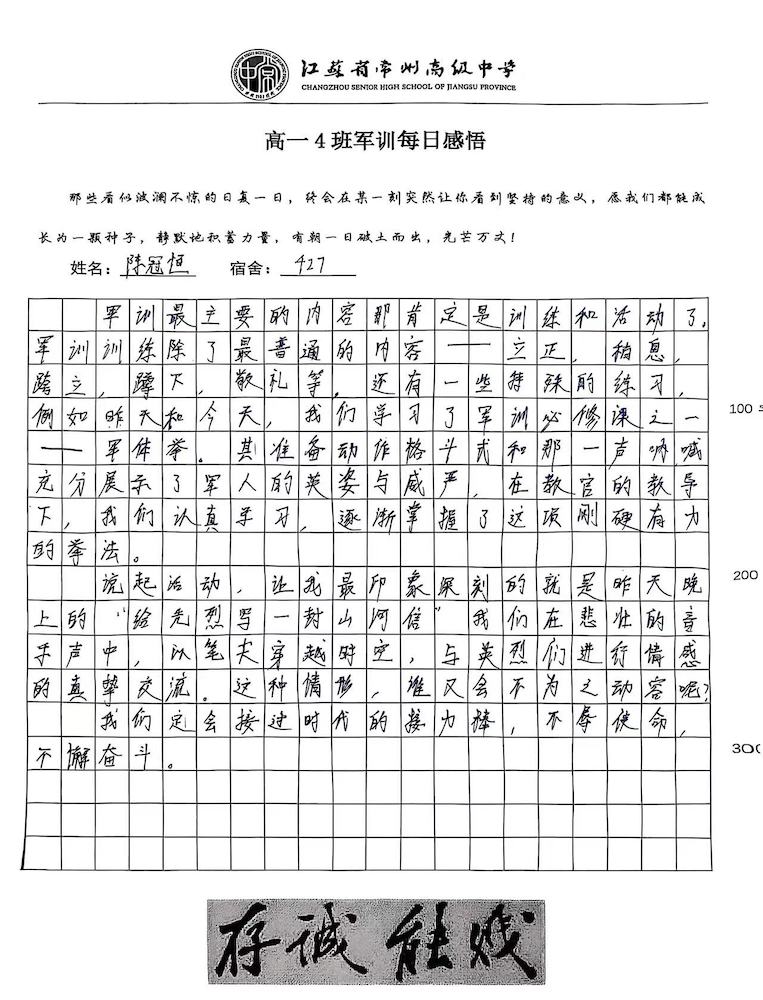 江苏省常州高级中学
CHANGZHOU SENIOR HIGH SCHOOL OF JIANGSU PROVINCE
高一4班军训每日感悟
那些看似波澜不惊的日复一日，终会在某一刻突然让你看到坚持的意义，愿我们都能成
长为一颗种子，静默地积蓄力量，有朝一日破土而出，光芒万丈！
姓名：陈冠恒 宿舍：427
军训最主要的内容那肯定是训练和活动了。
军训训练除了最普通的内容——立正，稍息，
跨立，蹲下，敬礼等，还有一些特殊的练习，
例如昨天和今天，我们学习了军训必修课之一 100
——军体拳。其准备动作格斗式和那一声呐喊
充分展示了军人的英姿与威严，在教官的教导
下，我们认真学习，逐渐掌握了这项刚硬有力
的拳法。
说起活动，让我最印象深刻的就是昨天晚 200
上的“给先烈写一封山河信”我们在悲壮的音
乐声中，以笔尖穿越时空，与英烈们进行情感
的真挚交流。这种情形，谁又会不为之动容呢？
我们定会接过时代的接力棒，不辱使命，
不懈奋斗。 300
存诚 能贱